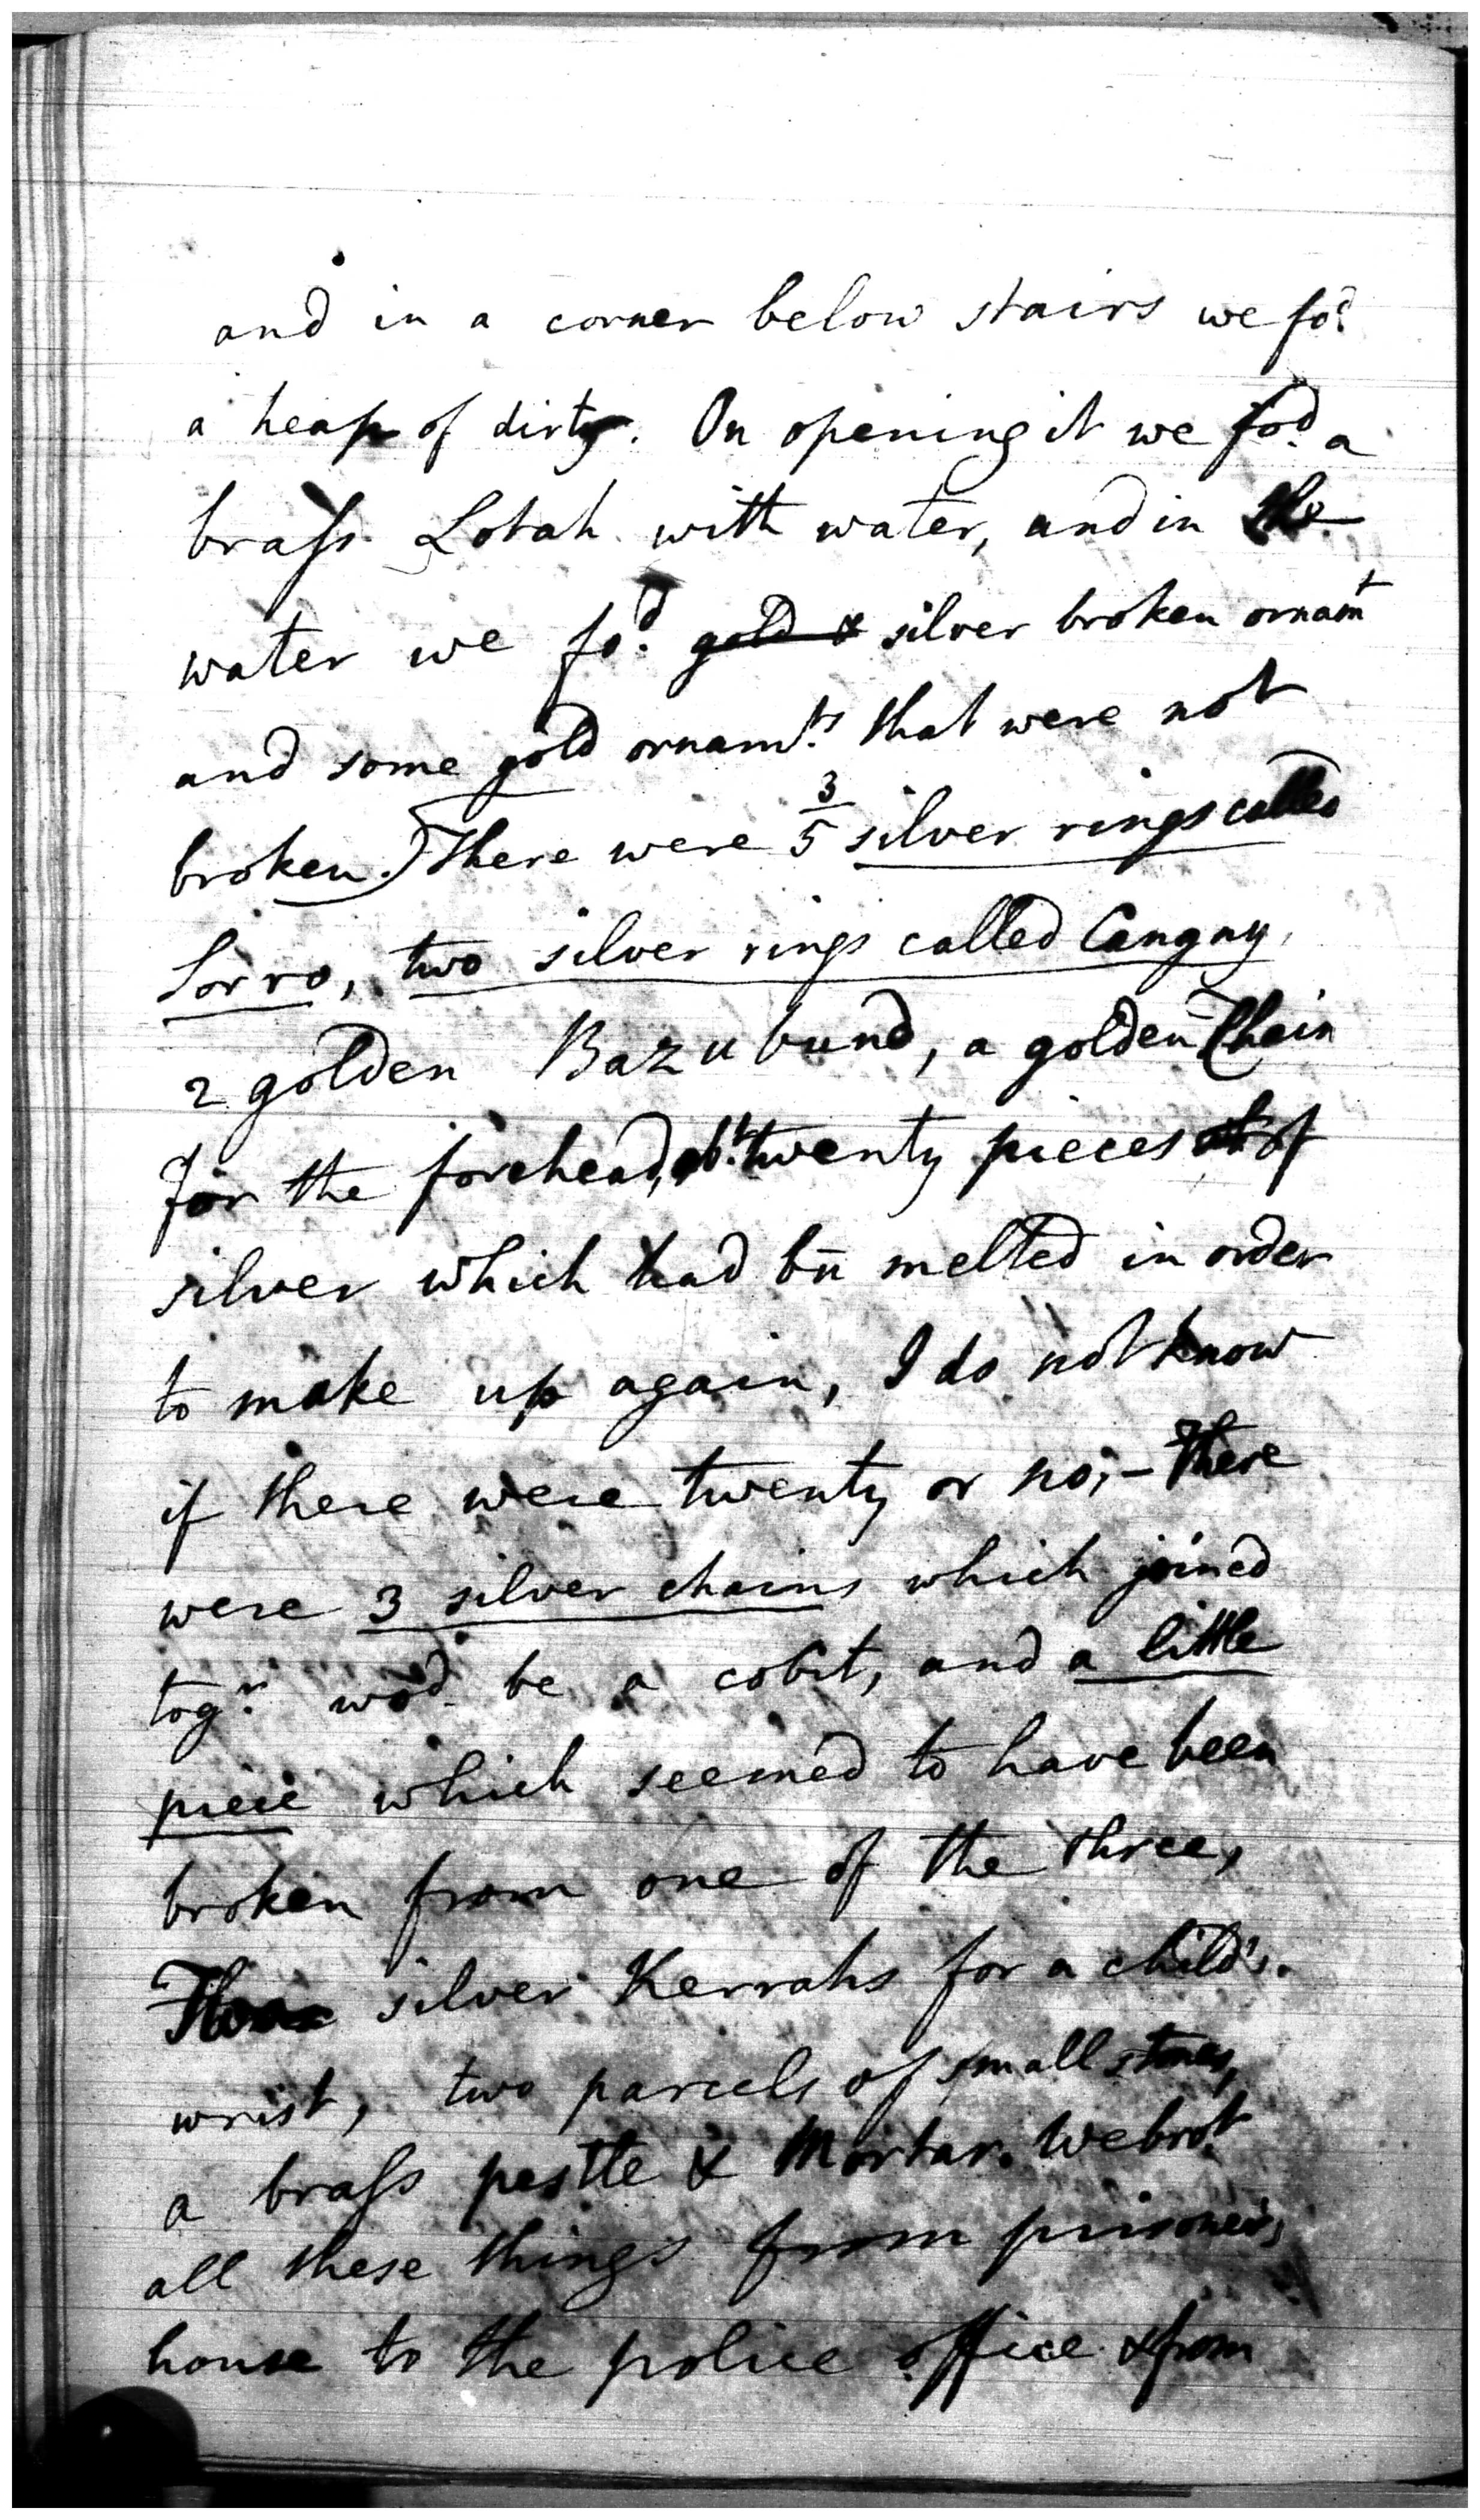 and in a corner below stairs we fod
a heap of dirty. On opening it we fod. a
brass Lotah with water, and in the
water we fod. gold & silver broken ornamt
and some gold ornamts. that were not
broken.) There were 3/5 silver rings called
Sorro, two silver rings called Cangny,
2 golden Bazubund, a golden Chain
for the forehead, abt. twenty pieces of
silver which had bn melted in order
to make up again, I do not know
if there were twenty or no;- There
were 3 silver chains which joined
togr. wod. be a cobit, and a little
piece which seemed to have been
broken from one of the three,
silver Kerrahs for a child's
wrist, two parcels of small stones,
a brass pestle & Mortar. We brot.
all these things from prisoner's
house to the police office & from